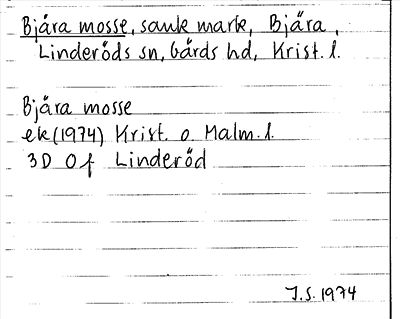 Bjåra mosse, sank mark, Bjära,
Linderöds sn, Gärds hd, Krist. l.
Bjåra mosse
ek (1974) Krist. o. Malm. l.
3D 0f Linderöd
J.S. 1974